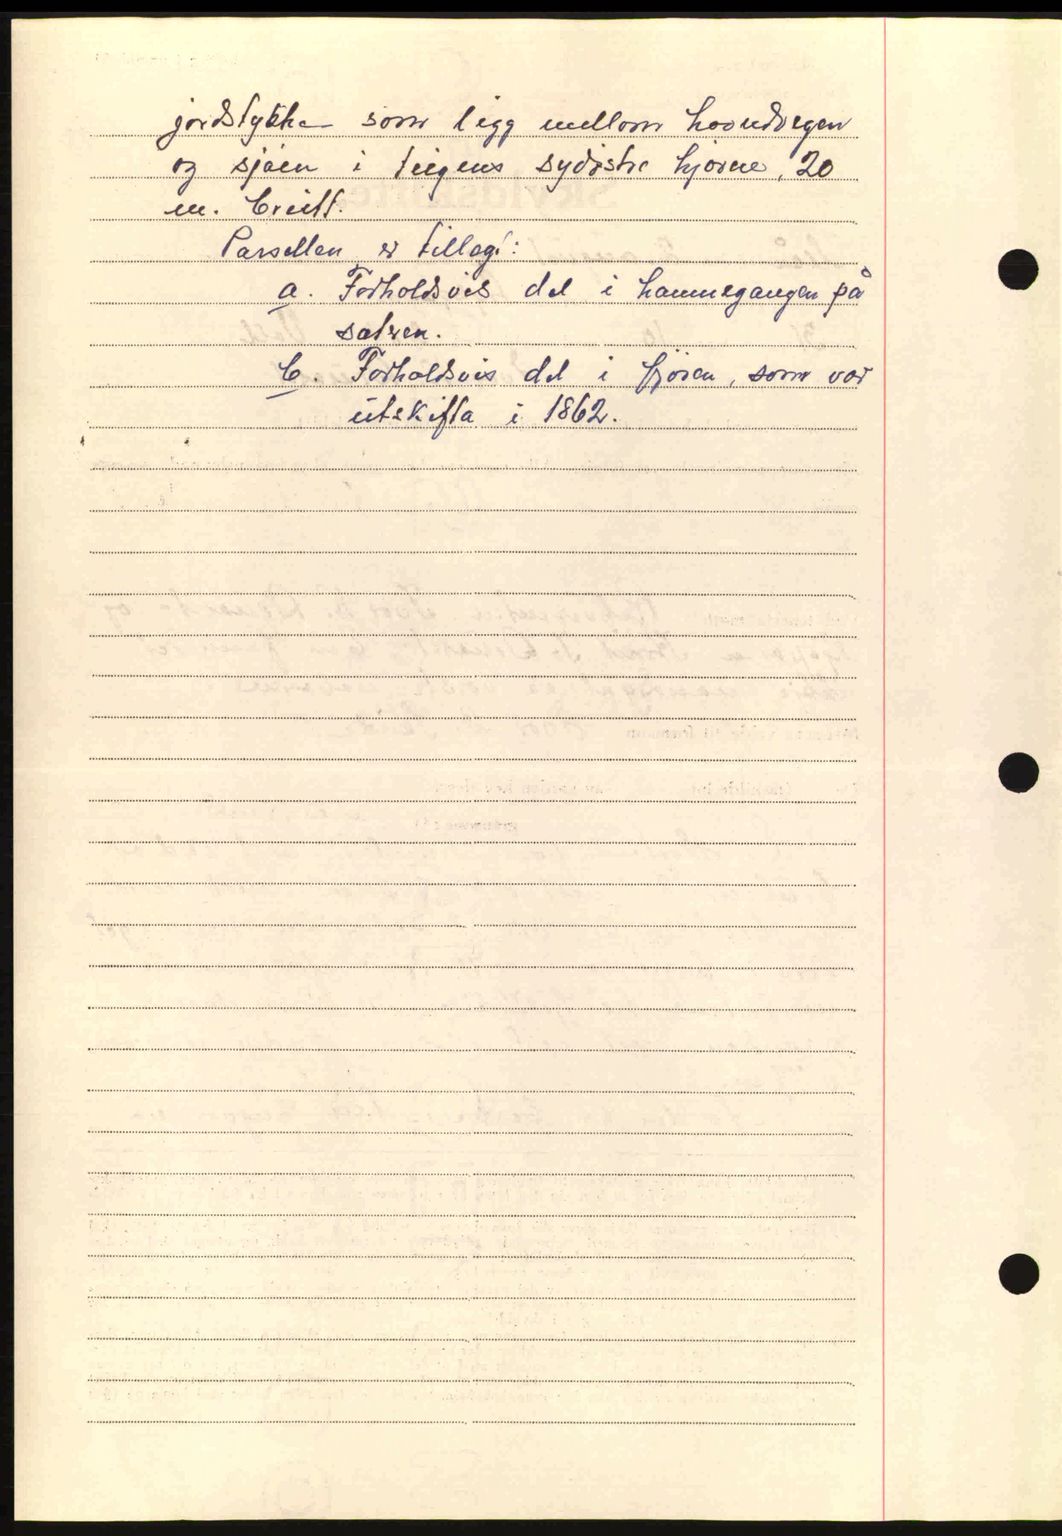 jordstykke som ligg mellom hovudvegen
og sjöen i teigens sydöstre hjörne, 20
m. breitt.
Parsellen er tillagt:
a. Forholdsvis del i hamnegangen på
b. Forholdsvis del i fjören, som var
utskifta i 1862.